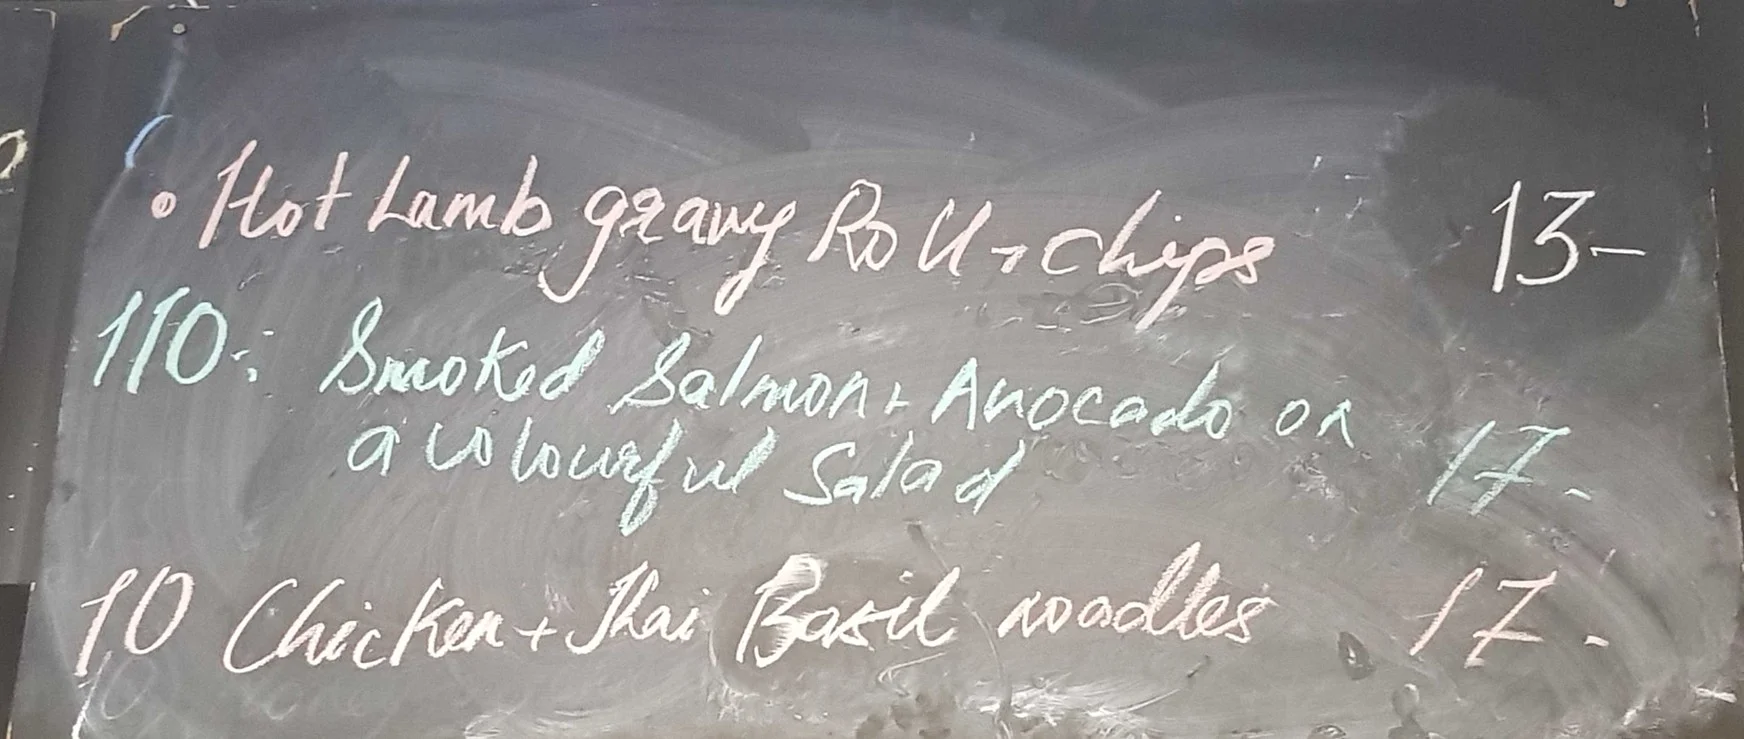 • Hot Lamb gravy Roll + chips 13-
110: Smoked Salmon + Avocado on
a colourful Salad 17-
10 Chicken + Thai Basil noodles 17-